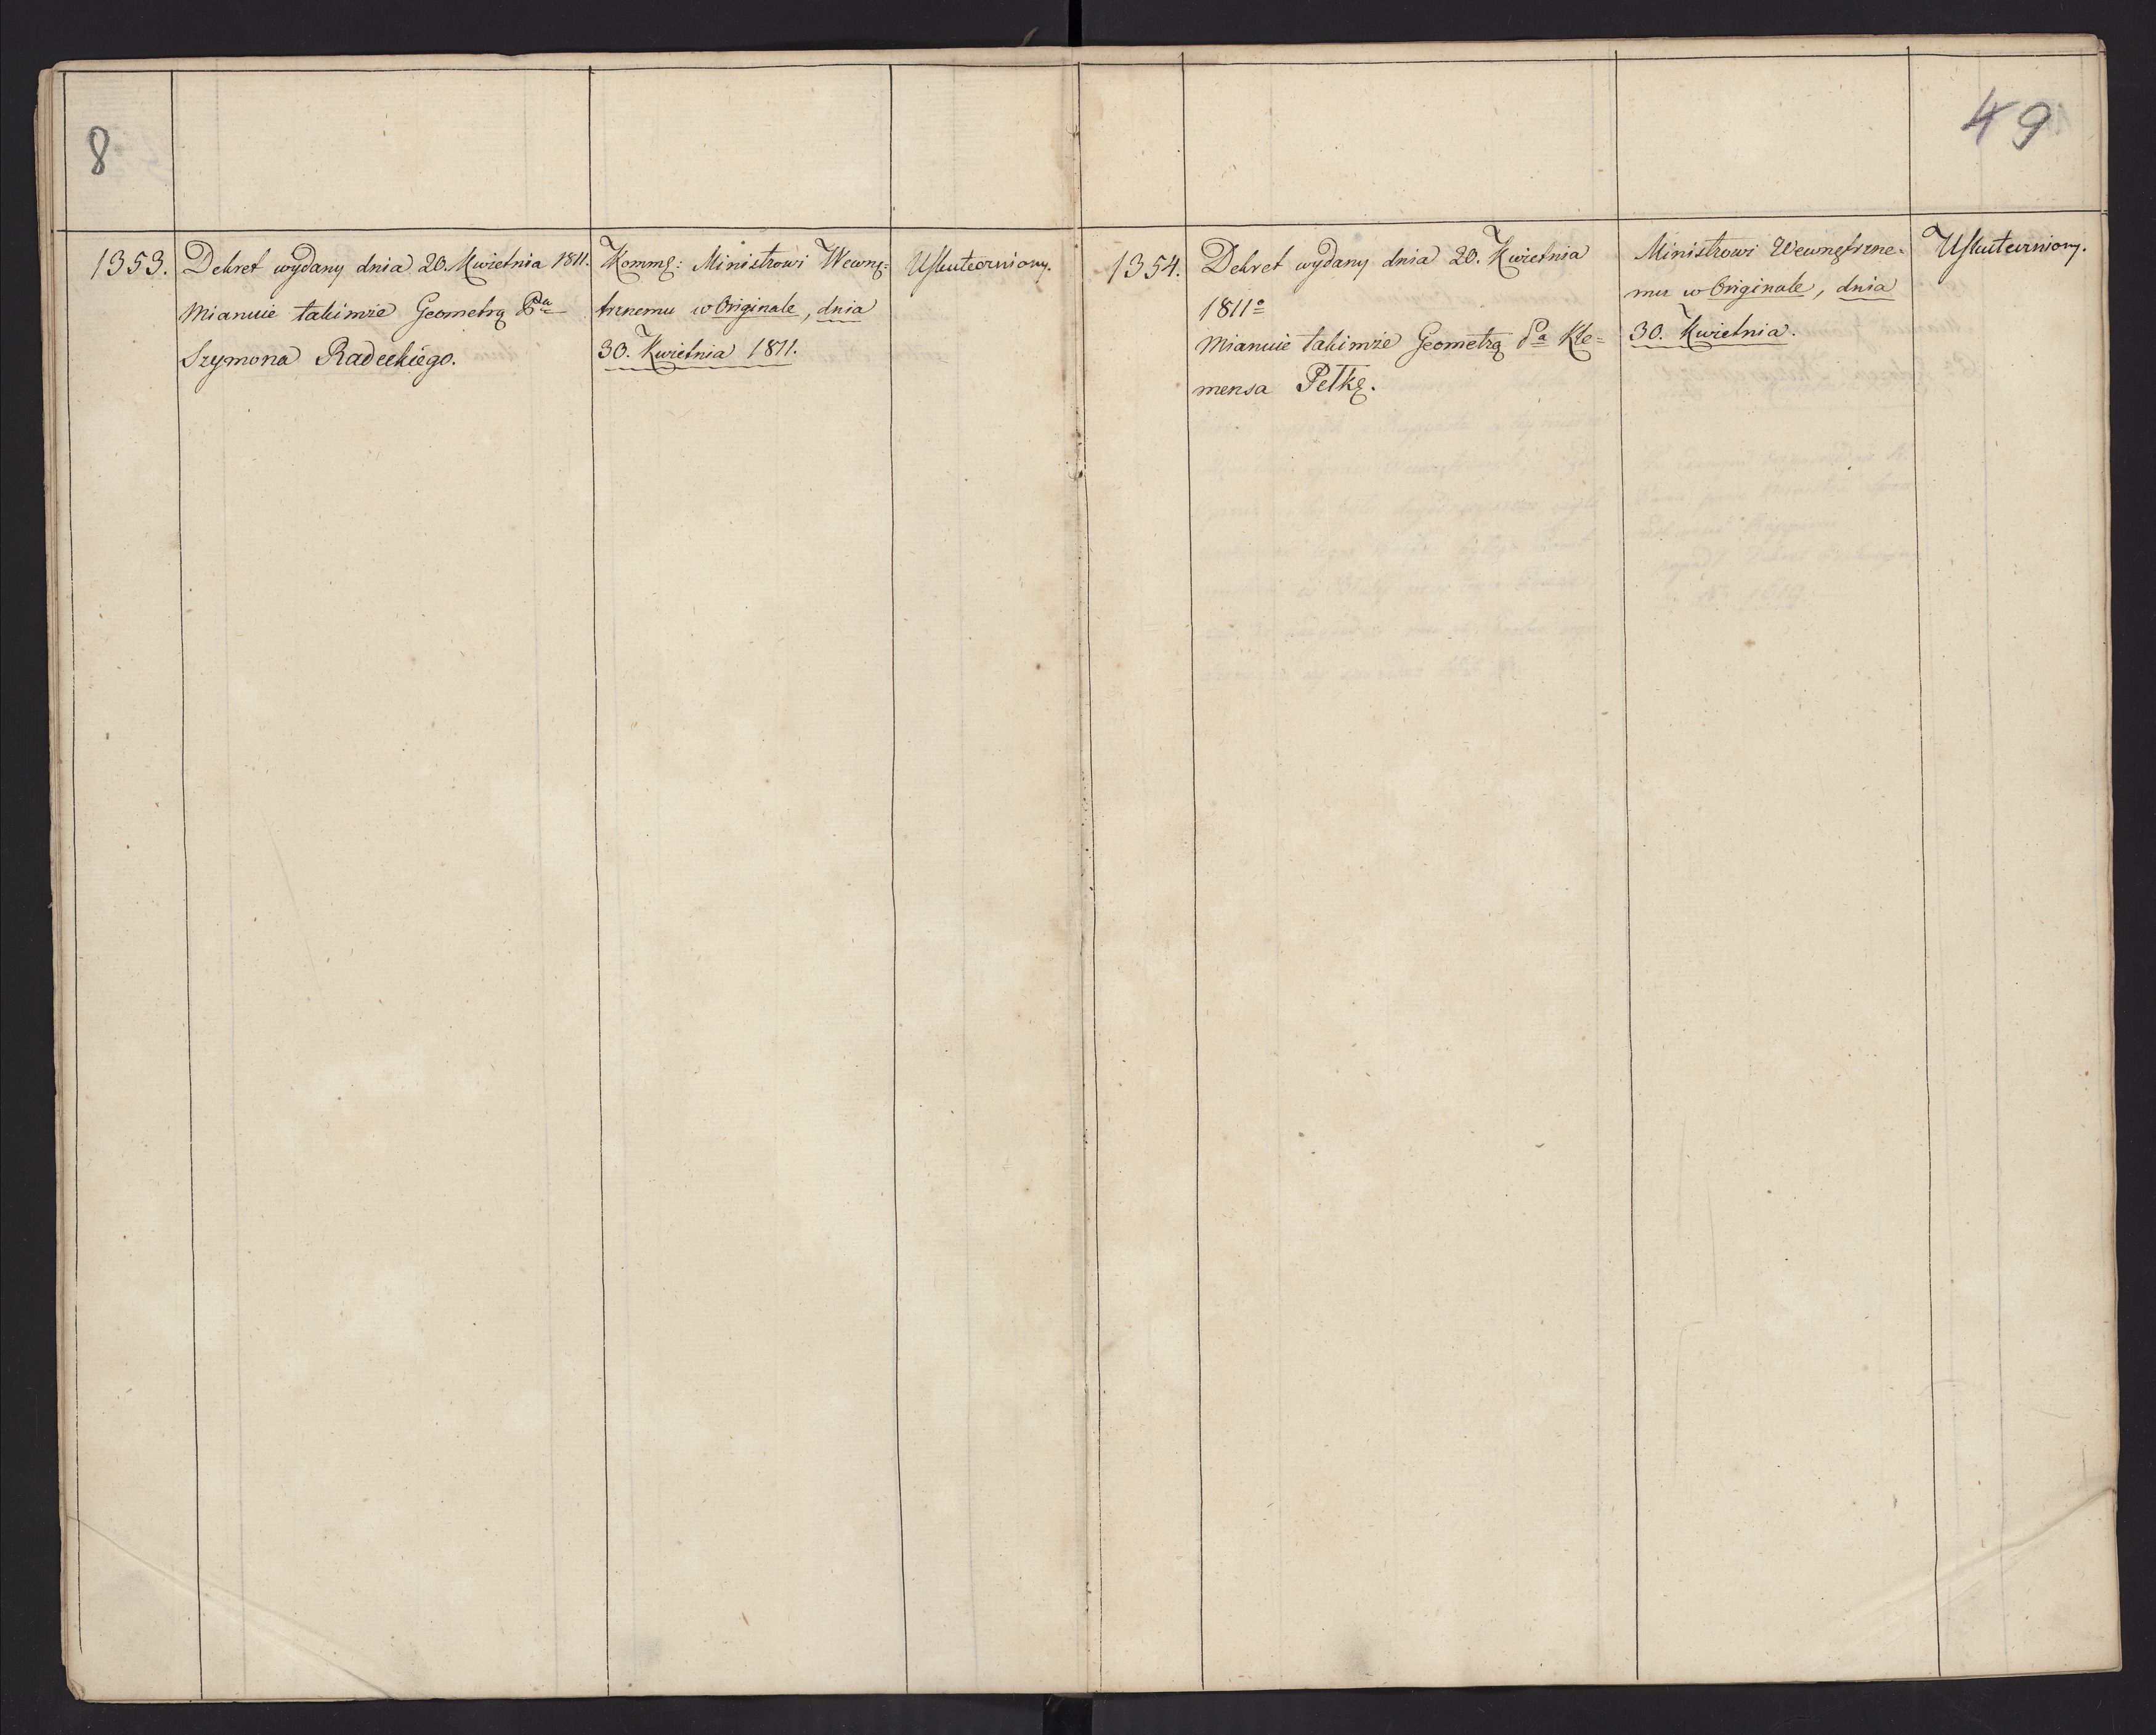 8
1353.
Dekret wydany dnia 20. Kwietnia 1811.
Mianuie takimże Geometrą Pa
Szymona Radeckiego.
Kommę: Ministrowi Wewnę:
trznemu w Originale, dnia
30. Kwietnia 1811.
Uskuteczniony.
49
1354.
Dekret wydany dnia 20. Kwietnia
1811o
Mianuie takimże Geometrą Pa Kle=
mensa Petkę.
Ministrowi Wewnętrzne=
mu w Originale, dnia
30. Kwietnia.
Uskuteczniony.